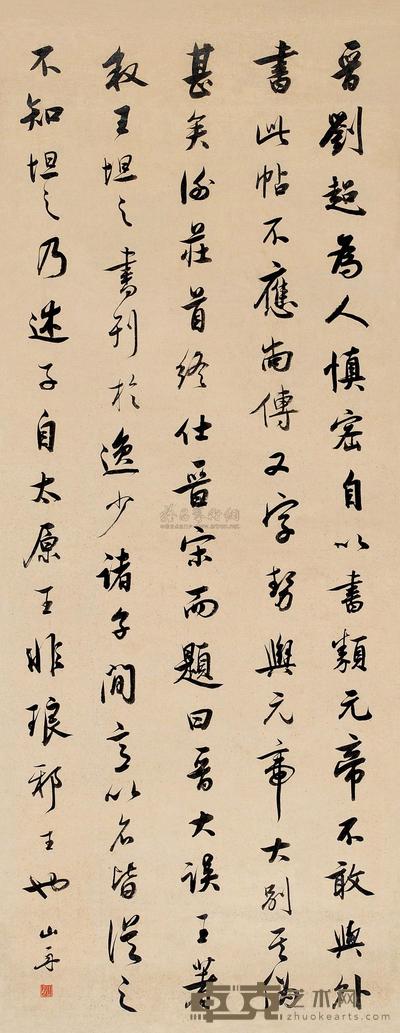 晋劉超為人慎密自以書類元帝不敢與外
書此帖不應尚傳又字勢與元帝大別其偽
甚矣謝莊首終仕晋宋而題曰晋大誤王著
叙王坦之書刊於逸少諸子間意以名皆從之
不知坦之乃述子自太原王非琅邪王也 山舟
卓克艺术网
zhuokearts.com